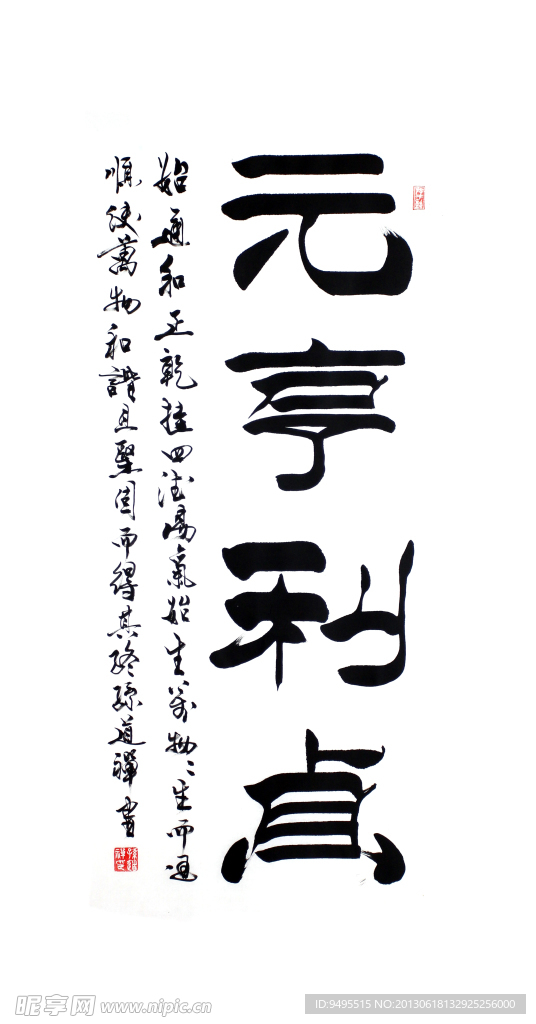 元亨利貞
始通和正乾挂四德陽氣始生萬物々生而通
順使萬物和諧且堅固而得其終孫道禪書
昵享网 www.nipic.cn
ID:9495515 NO:20130618132925256000